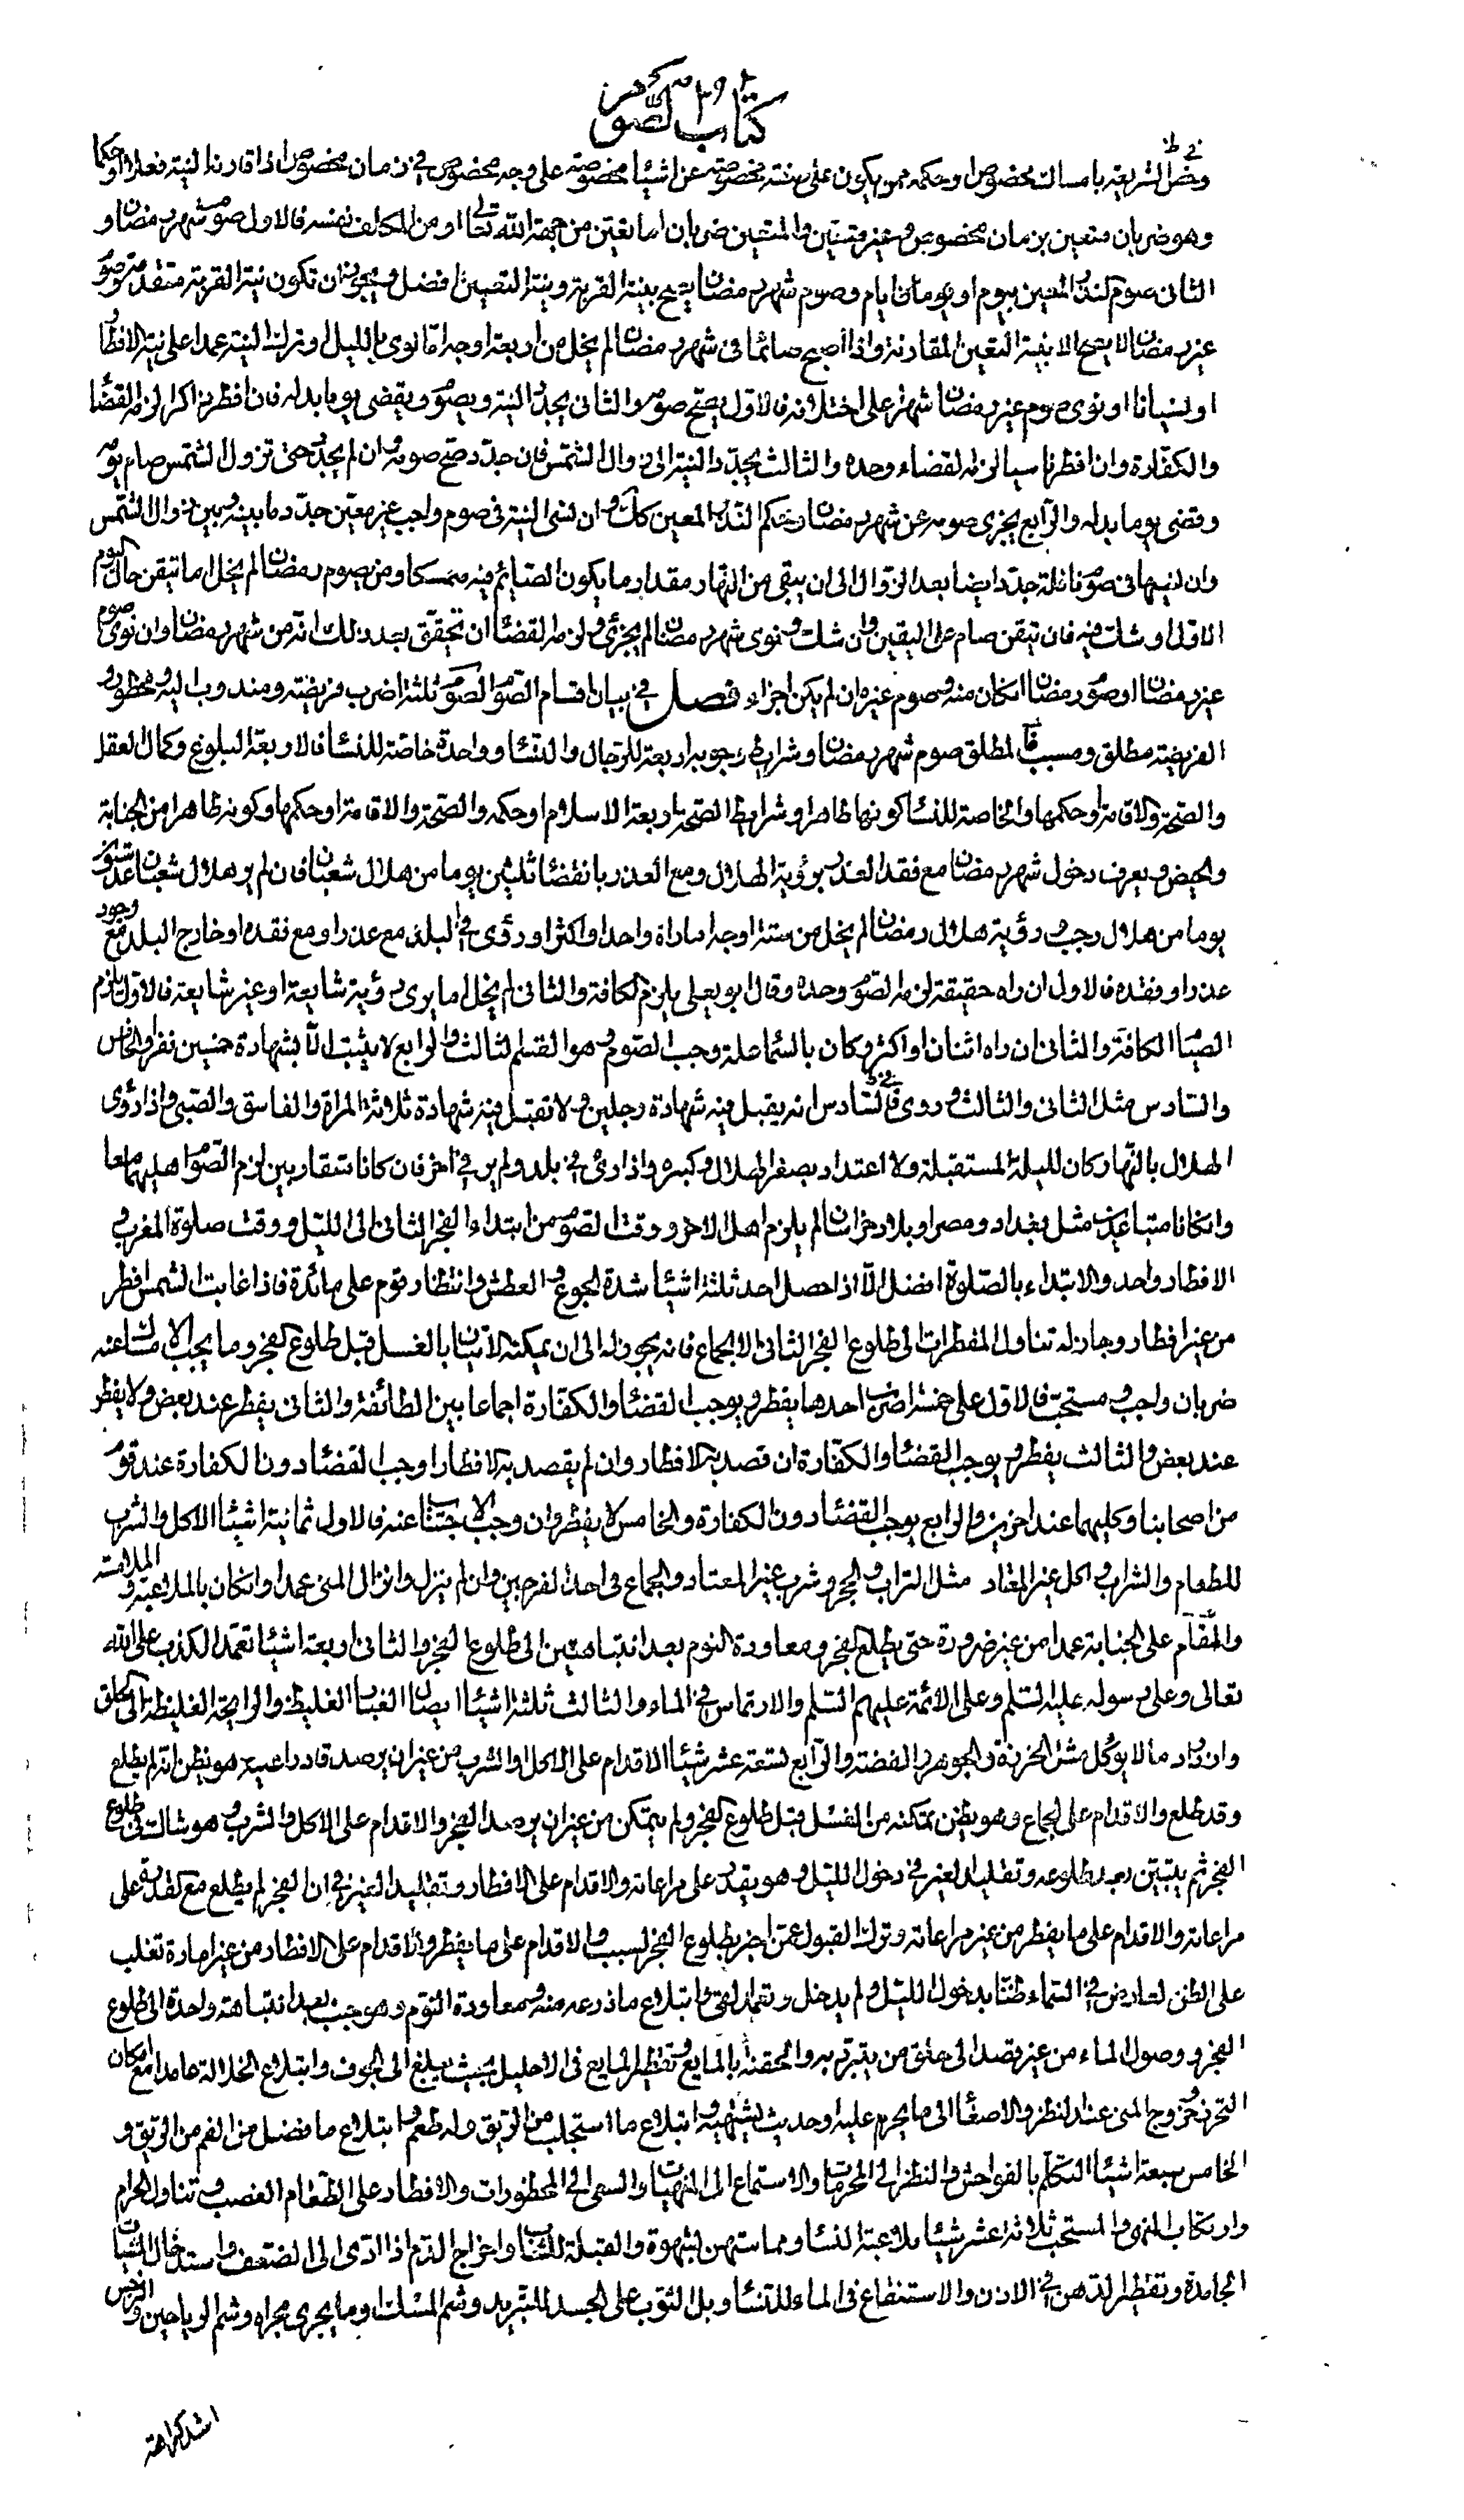 كتاب الصوم
وخص الشريعة بامساك مخصوص او حكمه ممن يكون على صفة مخصوصة عن اشياء مخصوصة على وجه مخصوص في زمان مخصوص اذا قارنه النية فعلا او حكما
وهو ضربان متعين بزمان مخصوص وغير متعين والمتعين ضربان اما تعين من جهة الله تعالى او من المكلف نفسه فالاول صوم شهر رمضان و
الثانى صوم النذر المعين بيوم او يومان ايام وصوم شهر رمضان يصح بنية القربة ونية التعيين افضل ويجوز ان تكون نية القربة متقدمة وصوم
غير رمضان لا يصح الا بنية التعين المقارنة واذا اصبح صائما فى شهر رمضان لم يخل من اربعة اوجه اما نوى بالليل او ترك النية عمدا على نية الافطار
او نسيانا او نوى صوم غير رمضان شهرا على اختلافه فالاول يصح صومه والثانى يجدد النية ويصوم ويقضى يوما بدله فان افطر ذاكرا لزمه القضاء
والكفارة وان افطر ناسيا لزمه القضاء وحده والثالث يجدد النية الى زوال الشمس فان جدد صح صومه وان لم يجدد حتى تزول الشمس صام يومه
وقضى يوما بدله والرابع يجزى صومه عن شهر رمضان وحكم النذر المعين كك وان نسى النية فى صوم واجب غير معين جدد ما بينه وبين زوال الشمس
وان نسيها فى صوم نافلة جدد ايضا بعد الزوال الى ان يبقى من النهار مقدار ما يكون الصائم فيه ممسكا ومن صيوم رمضان لم يخل اما تيقن حال اليوم
الاول او شك فيه فان تيقن صام على اليقين وان شك ونوى شهر رمضان لم يجزئ ولزمه القضاء ان تحقق بعد ذلك انه من شهر رمضان وان نوى صوم
غير رمضان او صوم رمضان ان كان منه وصوم غيره ان لم يكن اجزاء فصل في بيان اقسام الصوم الصوم ثلثة اضرب فريضة ومندوب اليه ومحظور و
الفريضة مطلق ومسبب فالمطلق صوم شهر رمضان وشرايط وجوبه اربعة للرجال والنساء وواحدة خاصة للنساء فالاربعة البلوغ وكمال العقل
والصحة والاقامة او حكمها والخاصة للنساء كونها طاهرا وشرايط الصحة اربعة الاسلام او حكمه والصحة والاقامة او حكمها وكونه طاهرا من الجنابة
والحيض ويعرف دخول شهر رمضان مع فقد العذر برؤية الهلال ومع العذر بانقضاء ثلثين يوما من هلال شعبان فان لم ير هلال شعبان عد ستون
يوما من هلال رجب ورؤية هلال رمضان لم يخل من ستة اوجه اما راه واحد او اكثر او رؤى في البلد مع عذر او مع فقده او خارج البلد مع وجود
عذر او فقده فالاول ان راه حقيقة لزمه الصوم وحده وقال ابو يعلى يلزم الكافة والثانى لم يخل اما يرى رؤية شايعة او غير شايعة فالاول يلزم
الصيام الكافة والثانى ان راه اثنان او اكثر وكان بالسماء علة وجب الصوم وهو القسم الثالث والرابع لا يثبت الا بشهادة خمسين نفرا والخامس
والسادس مثل الثانى والثالث وروى في السادس انه يقبل فيه شهادة رجلين ولا تقبل فيه شهادة ثلاثة المراة والفاسق والصبى واذا رؤى
الهلال بالنهار كان لليلة المستقبلة ولا اعتداد بصغر الهلال وكبره واذا رؤى في بلد ولم ير في اخر فان كانا متقاربين لزم الصوم اهليهما معا
وان كانا متباعدين مثل بغداد ومصر او بلاد خراسان لم يلزم اهل الاخر ووقت الصوم من ابتداء الفجر الثانى الى الليل ووقت صلوة المغرب و
الافطار واحد والابتداء بالصلوة افضل الا اذا حصل احد ثلثة اشياء شدة الجوع والعطش وانتظار قوم على مائدة فاذا غابت الشمس افطر
من غير افطار وجاز له تناول المفطرات الى طلوع الفجر الثانى الا الجماع فانه يجوز له الى ان يمكنه الاتيان بالغسل قبل طلوع الفجر وما يجب الامساك عنه
ضربان واجب ومستحب فالاول على خمسة اضرب احدها يفطر ويوجب القضاء والكفارة اجماعا بين الطائفة والثانى يفطر عند بعض ولا يفطر
عند بعض والثالث يفطر ويوجب القضاء والكفارة ان قصد به الافطار وان لم يقصد به الافطار اوجب القضاء دون الكفارة عند قوم
من اصحابنا وكليهما عند اخرين والرابع يوجب القضاء دون الكفارة والخامس لا يفطر وان وجب الاجتناب عنه فالاول ثمانية اشياء الاكل والشرب
للطعام والشراب واكل غير المعتاد مثل التراب والحجر وشرب غير المعتاد والجماع فى احد الفرجين وان لم ينزل وانزال المنى عمدا وان كان بالملاعبة والملامسة
والمقام على الجنابة عمدا من غير ضرورة حتى يطلع الفجر ومعاودة النوم بعد انتباهتين الى طلوع الفجر والثانى اربعة اشياء تعمد الكذب على الله
تعالى وعلى رسوله عليه السلم وعلى الائمة عليهم السلم والارتماس في الماء والثالث ثلثة اشياء ايصال الغبار الغليظ والرايحة الغليظة الى الحلق
وازدراد ما لا يؤكل مثل الخرزة والجوهر والفضة والرابع تسعة عشر شيئا الاقدام على الاكل والشرب من غير ان يرصد قادرا عليه وهو يظن انه لم يطلع
وقد طلع والاقدام على الجماع وهو يظن تمكنه من الغسل قبل طلوع الفجر ولم يتمكن من غير ان يرصد الفجر والاقدام على الاكل والشرب وهو شاك فى طلوع
الفجر ثم يتبين بعد طلوعه وتقليد الغير في دخول الليل وهو يقدر على مراعاته والاقدام على الافطار وتقليد الغير في ان الفجر لم يطلع مع القدرة على
مراعاته والاقدام على ما يفطر من غير مراعاته وترك القبول عمن اخبر بطلوع الفجر لسبب والاقدام على ما يفطر والاقدام على الافطار من غير امارة تغلب
على الظن لعارض في السماء ظنا بدخول الليل ولم يدخل وتعمد القئ وابتلاع ما ذرعه منه ومعاودة النوم وهو جنب بعد انتباهة واحدة الى طلوع
الفجر ووصول الماء من غير قصد الى حلق من يتبرد به والحقنة بالمايع وتقطير المايع فى الاحليل بحيث يبلغ الى الجوف وابتلاع الخلالة عامدا مع امكان
التحرز وخروج المنى عند النظر والاصغاء الى ما يحرم عليه وحديث يشتهيه وابتلاع ما استجلب من الريق وله طعم وابتلاع ما فضل من الفم من الريق و
الخامس سبعة اشياء التكلم بالفواحش والنظر الى المحرمات والاستماع الى المنهيات والسعى الى المحظورات والافطار على الطعام الغصب وتناول الحرام
وارتكاب المنهى والمستحب ثلاثة عشر شيئا ملاعبة النساء ومماستهن بشهوة والقبلة للشاب واخراج الدم اذا ادى الى الضعف واستدخال الشياف
الجامدة وتقطير الدهن في الاذن والاستنقاع فى الماء للنساء وبل الثوب على الجسد للتبريد وشم المسك وما يجرى مجراه وشم الرياحين والنرجس
اشد كراهة